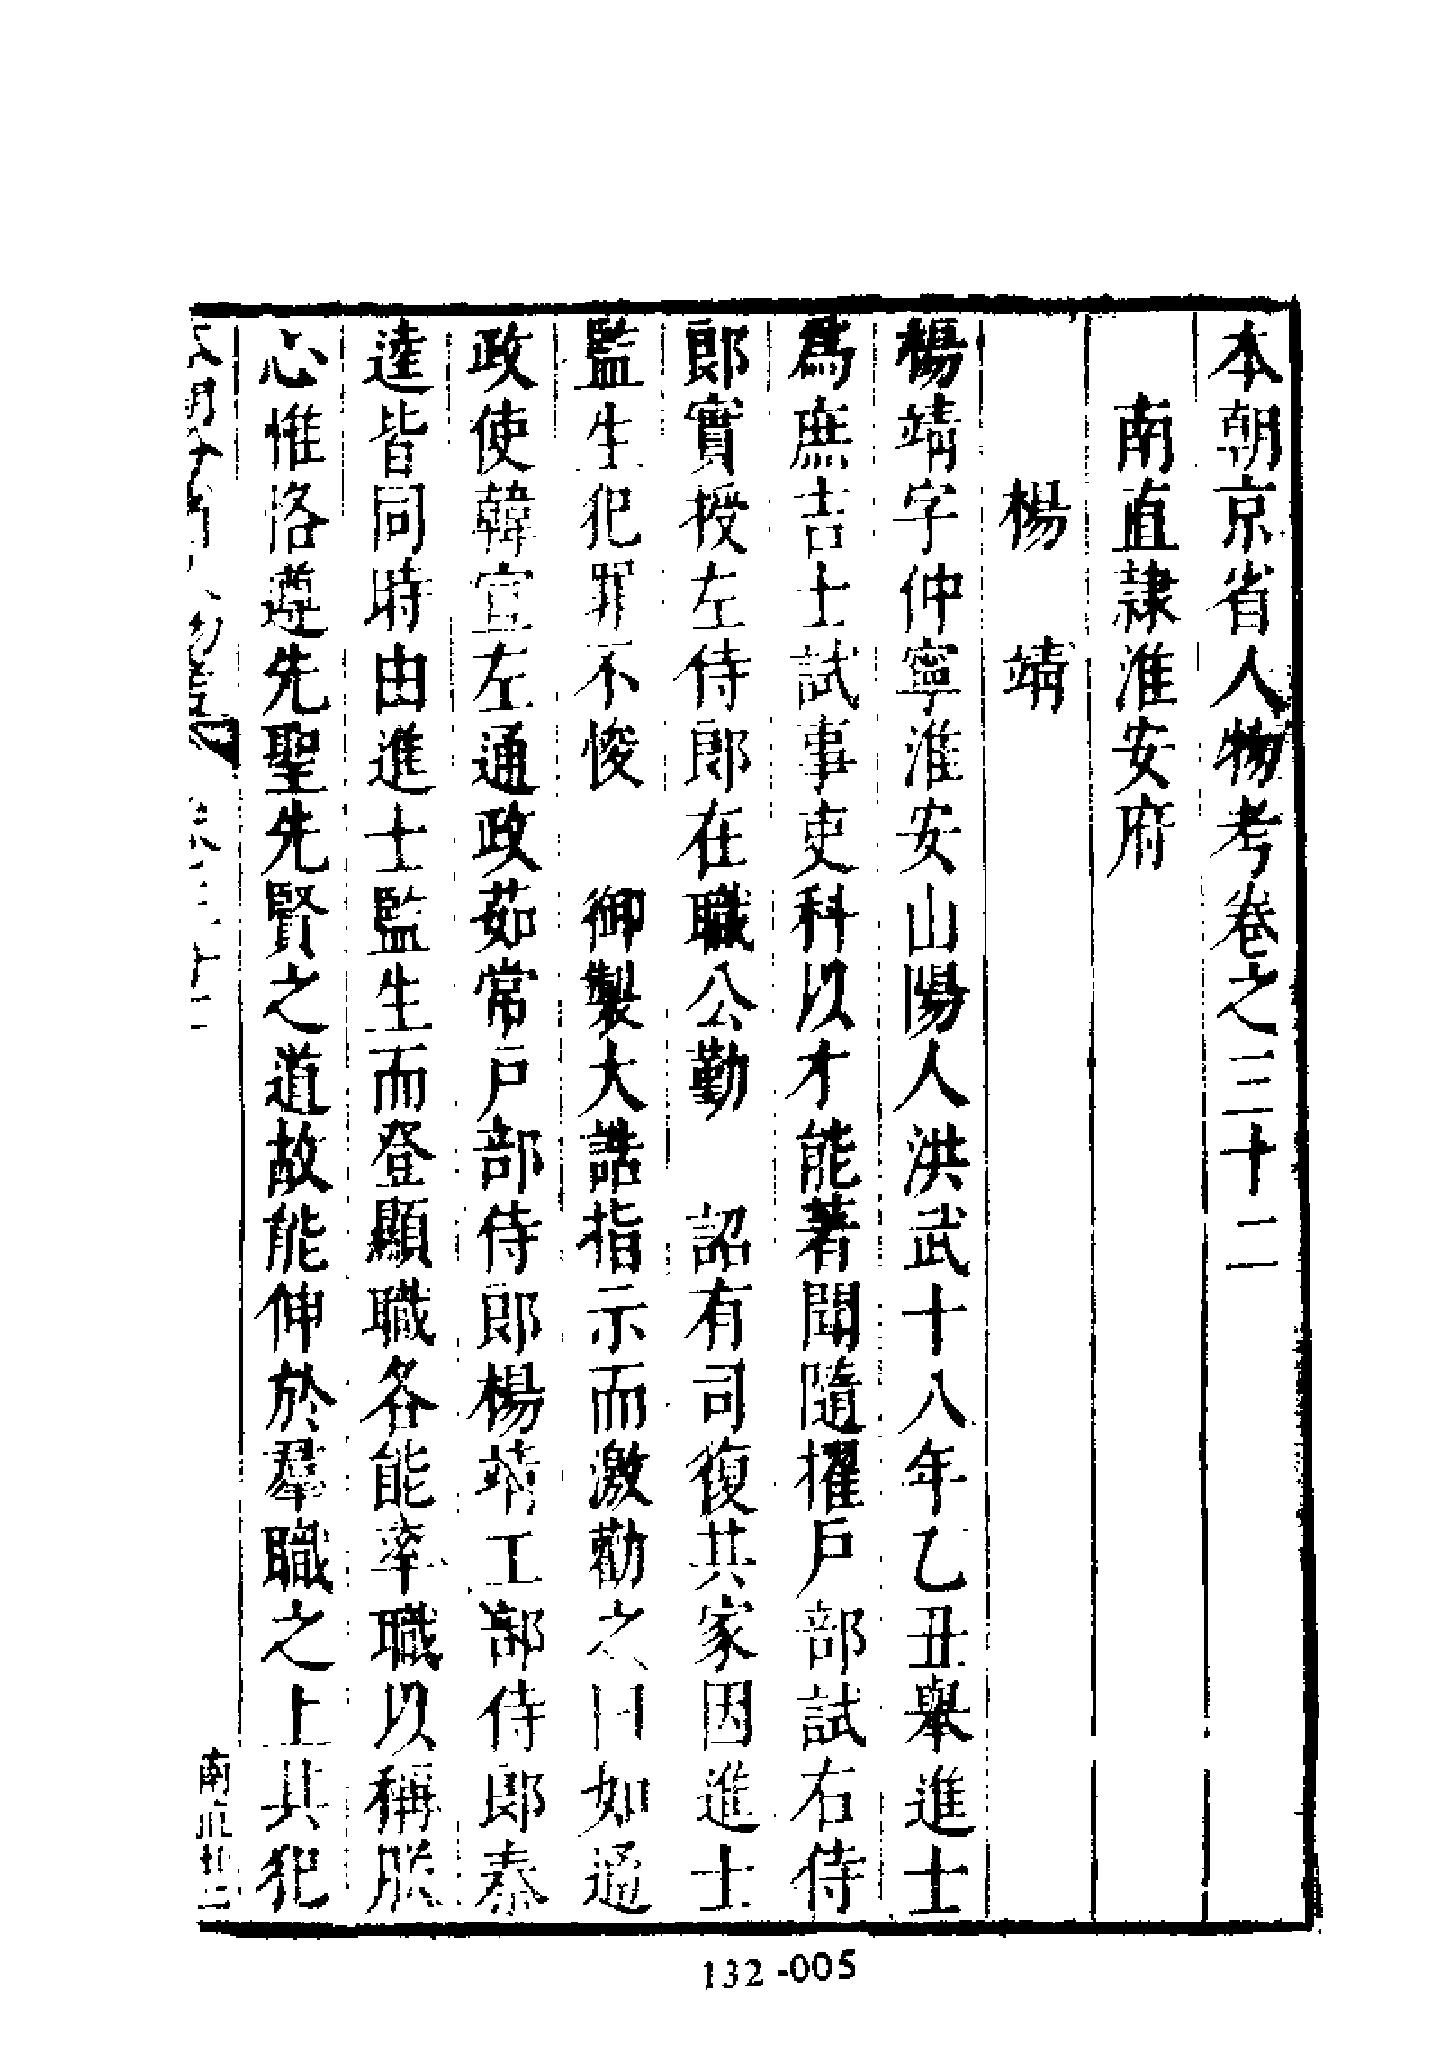 本朝京省人物考卷之三十二
南直隸淮安府
楊靖
楊靖字仲寧淮安山陽人洪武十八年乙丑舉進士
爲庶吉士試事吏科以才能著聞隨擢戶部試右侍
郎實授左侍郎在職公勤 詔有司復其家因進士
監生犯罪不悛 御製大誥指示而激勸之曰如通
政使韓宜左通政茹常戶部侍郎楊靖工部侍郎秦
逵皆同時由進士監生而登顯職各能率職以稱朕
心惟洛遵先聖先賢之道故能伸於羣職之上其犯
132-005